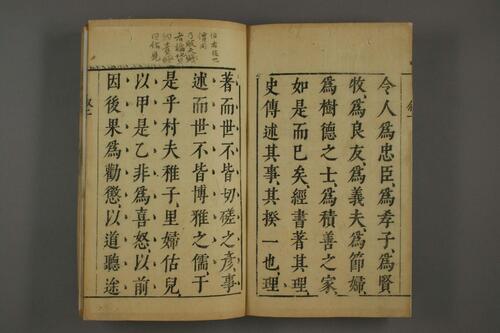 令人爲忠臣、爲孝子、爲賢
牧、爲良友、爲義夫、爲節婦、
爲樹德之士、爲積善之家、
如是而已矣、經書著其理、
史傳述其事、其揆一也、理
著而世不皆切磋之彦、事
述而世不皆博雅之儒、于
是乎村夫稚子、里婦估兒、
以甲是乙非爲喜怒、以前
因後果爲勸懲、以道聽途